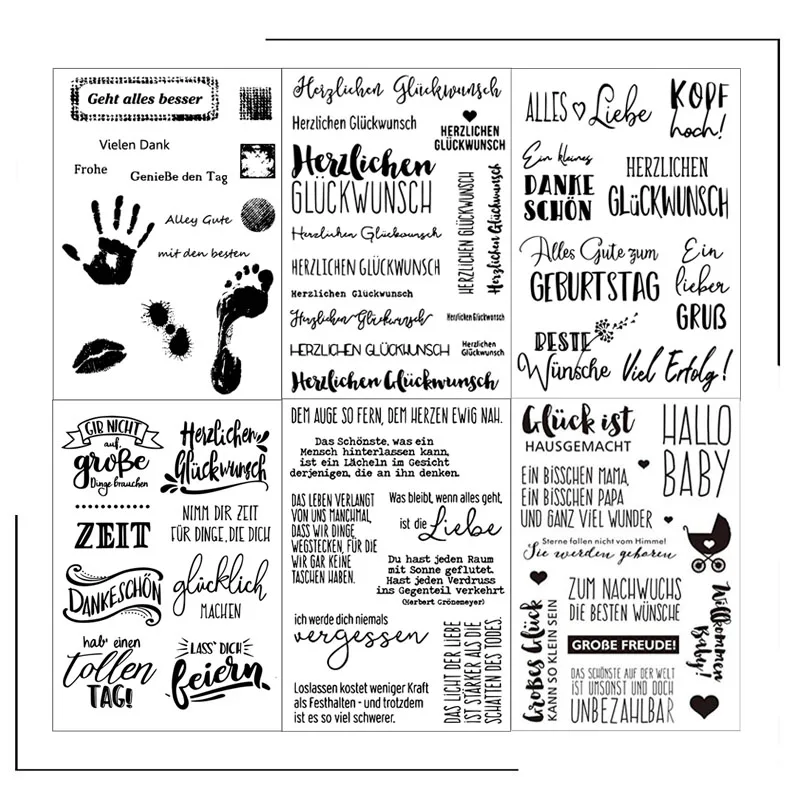 Geht alles besser
Vielen Dank
Frohe
GenieBe den Tag
Alley Gute
mit den besten
Herzlichen Glückwunsch
Herzlichen Glückwunsch
HERZLICHEN
GLÜCKWUNSCH
Herzlichen
GLÜCKWUNSCH
Herzlichen Glückwunsch
HERZLICHEN GLÜCKWUNSCH
Herzlichen Glückwunsch
Herzlichen Glückwunsch
HERZLICHEN GLÜCKWUNSCH
Herzlichen Glückwunsch
HERZLICHEN GLÜCKWUNSCH
Herzlichen Glückwunsch
Herzlichen Glückwunsch
Herzlichen
Glückwunsch
ALLES Liebe
KOPF
hoch!
Ein kleines
DANKE
SCHÖN
HERZLICHEN
GLÜCKWUNSCH
Alles Gute zum
GEBURTSTAG
Ein
lieber
GRUß
BESTE
Wünsche
Viel Erfolg!
GIB NICHT
auf,
große
Dinge brauchen
ZEIT
Herzlichen
Glückwunsch
NIMM DIR ZEIT
FÜR DINGE, DIE DICH
glücklich
MACHEN
DANKESCHÖN
hab' einen
tollen
TAG!
LASS' DICH
feiern
DEM AUGE SO FERN, DEM HERZEN EWIG NAH.
Das Schönste, was ein
Mensch hinterlassen kann,
ist ein Lächeln im Gesicht
derjenigen, die an ihn denken.
DAS LEBEN VERLANGT
VON UNS MANCHMAL,
DASS WIR DINGE
WEGSTECKEN, FÜR DIE
WIR GAR KEINE
TASCHEN HABEN.
Was bleibt, wenn alles geht,
ist die Liebe
Du hast jeden Raum
mit Sonne geflutet.
Hast jeden Verdruss
ins Gegenteil verkehrt
(Herbert Grönemeyer)
ich werde dich niemals
vergessen
Loslassen kostet weniger Kraft
als Festhalten - und trotzdem
ist es so viel schwerer.
DAS LICHT DER LIEBE
IST STÄRKER ALS DIE
SCHATTEN DES TODES.
Glück ist
HAUSGEMACHT
HALLO
BABY
EIN BISSCHEN MAMA,
EIN BISSCHEN PAPA
UND GANZ VIEL WUNDER
Sterne fallen nicht vom Himmel
Sie werden geboren
Großes Glück
KANN SO KLEIN SEIN
ZUM NACHWUCHS
DIE BESTEN WÜNSCHE
GROßE FREUDE!
DAS SCHÖNSTE AUF DER WELT
IST UMSONST UND DOCH
UNBEZAHLBAR
Willkommen
Baby!